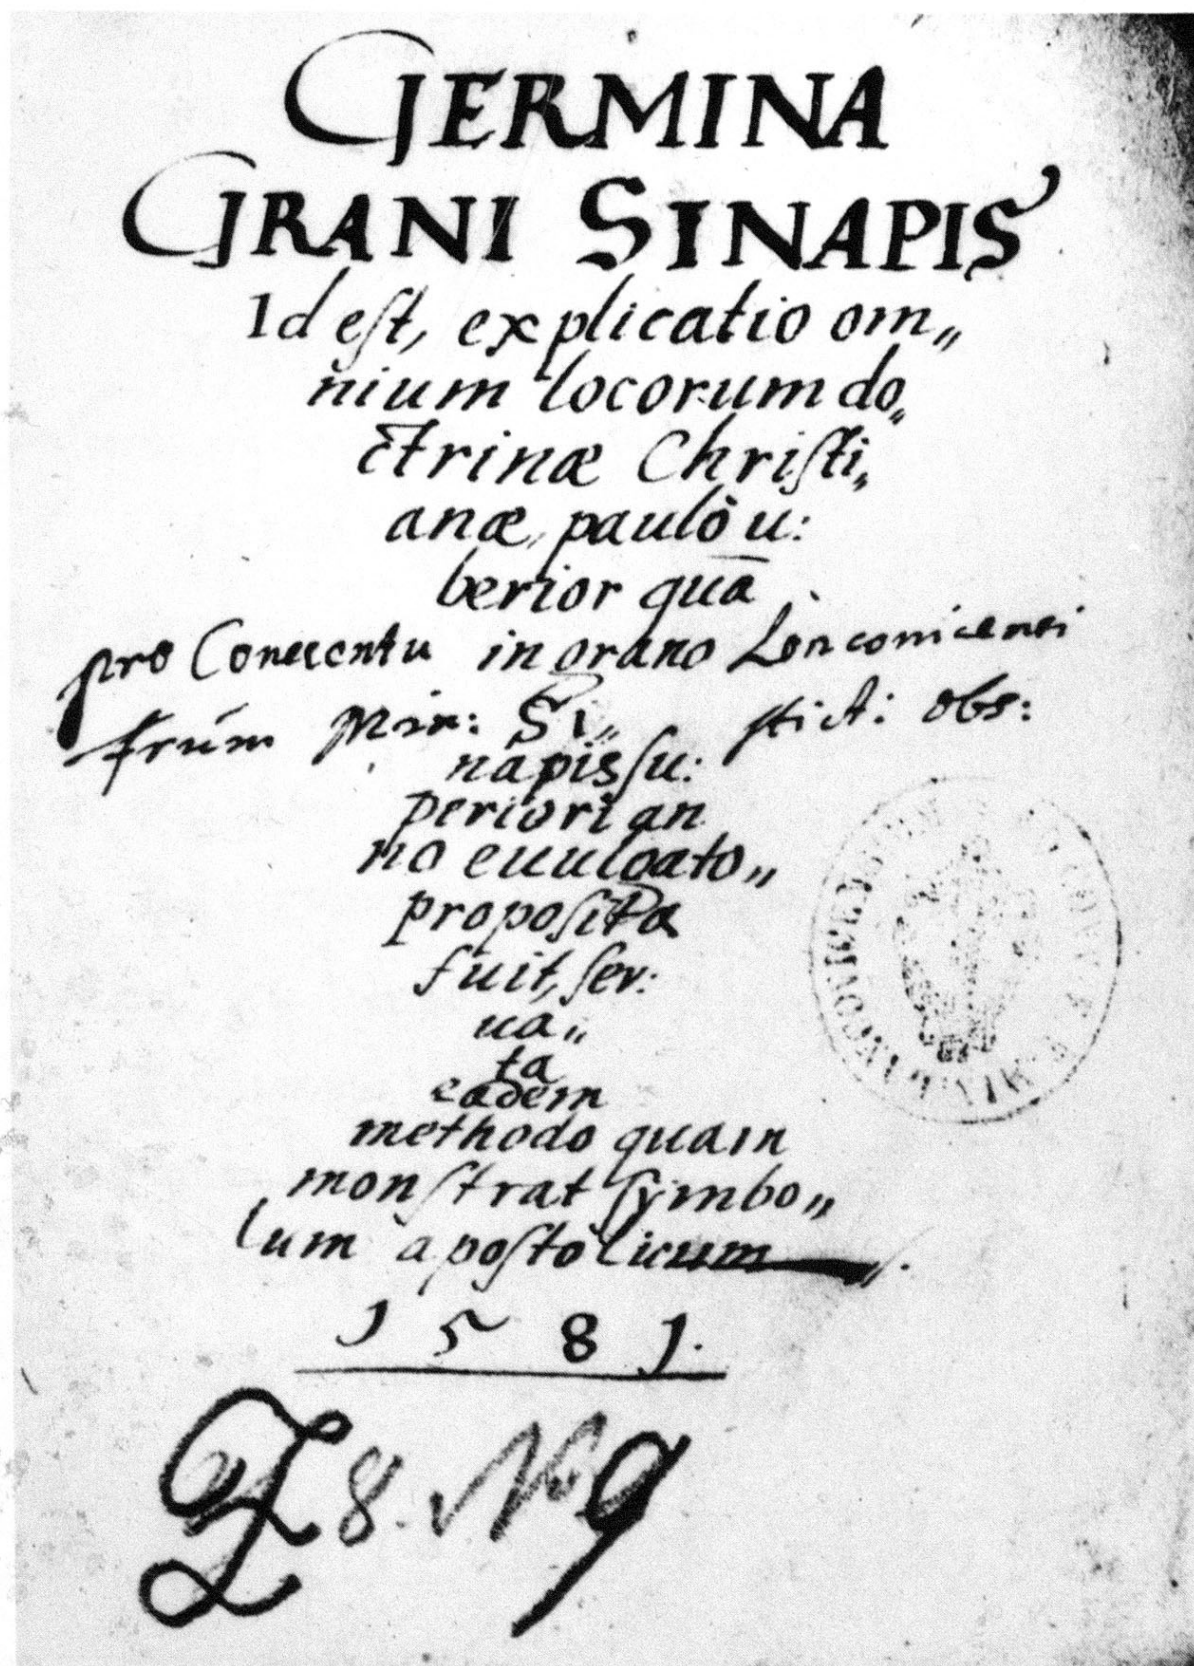 GERMINA
GRANI SINAPIS
Id eſt, explicatio om„
nium locorum do„
ctrinæ Chriſti„
anæ, paulò u:
berior quā
pro Conuentu in grano Lonconicensi
frūm Min: Si„ ſtrict: obs:
napis ſu:
periori an
no euulgato„
propoſita
fuit, ſer:
ua„
ta
eadem
methodo quam
monſtrat ſymbo„
lum apoſtolicum.
1581.
8. N 9